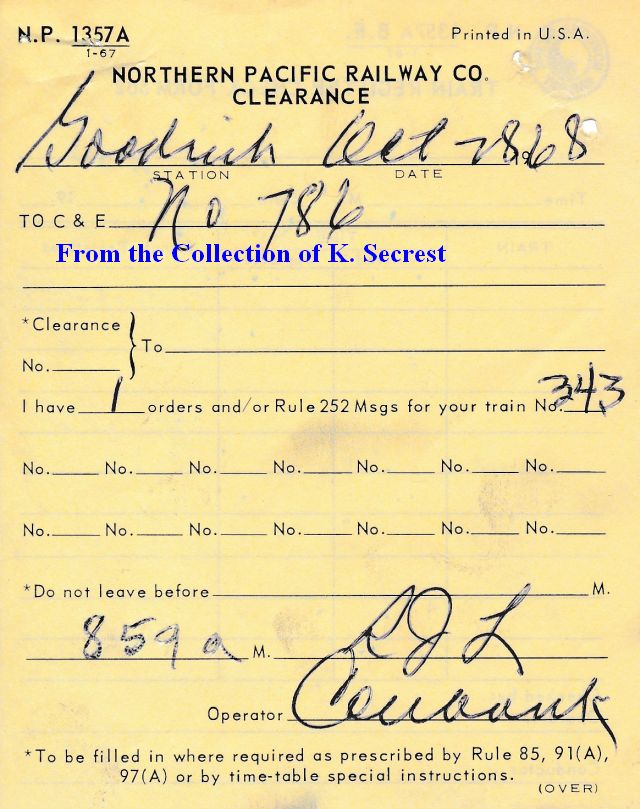 N.P. 1357A Printed in U.S.A.
1-67
NORTHERN PACIFIC RAILWAY CO.
CLEARANCE
Goodrich Oct 28 1968
STATION DATE
TO C & E No 786
From the Collection of K. Secrest
*Clearance
No. To
I have 1 orders and/or Rule 252 Msgs for your train No. 343
No. No. No. No. No. No. No.
No. No. No. No. No. No. No.
*Do not leave before M.
859 a M. R J L
Operator
*To be filled in where required as prescribed by Rule 85, 91(A),
97(A) or by time-table special instructions.
(OVER)